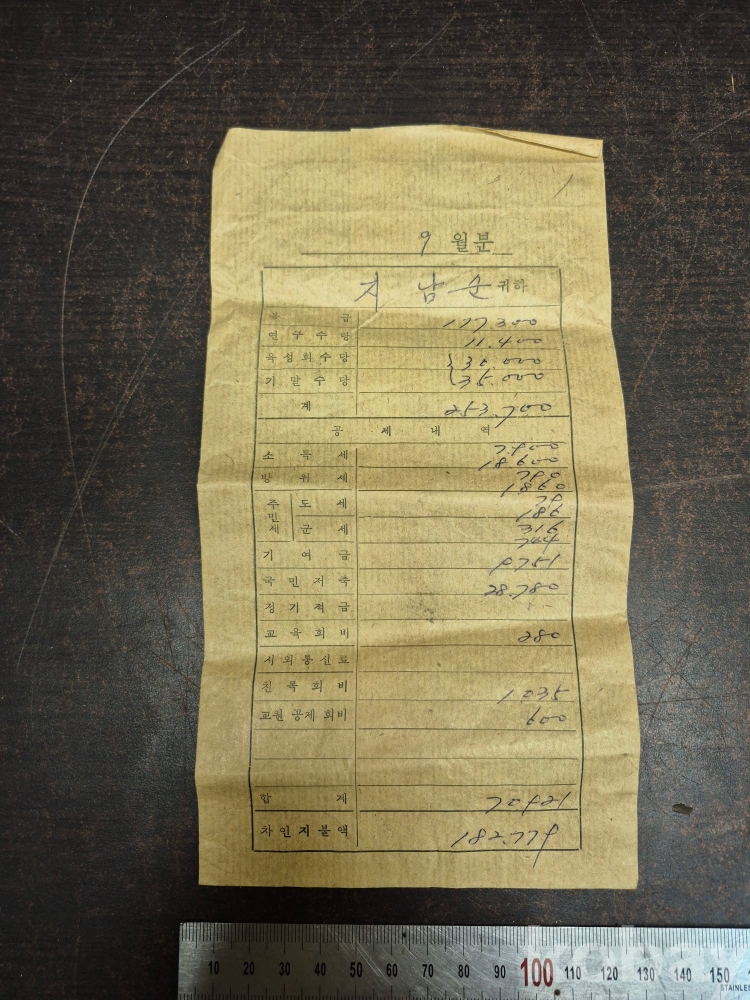 9 월분
지 남 순 귀하
본 급 177.300
연 구 수 당 11.400
육 성 회 수 당 30.000
기 말 수 당 35.000
계 253.700
공 제 내 역
소 득 세 7.900
18.600
방 위 세 790
1860
주 민 세
도 세 79
186
군 세 316
744
기 여 금 9751
국 민 저 축 28.780
정 기 적 금
교 육 회 비 280
시 외 통 신 료
친 목 회 비 1035
교원 공제 회비 600
합 계 70921
차 인 지 불 액 182.779
10 20 30 40 50 60 70 80 90 100 110 120 130 140 150